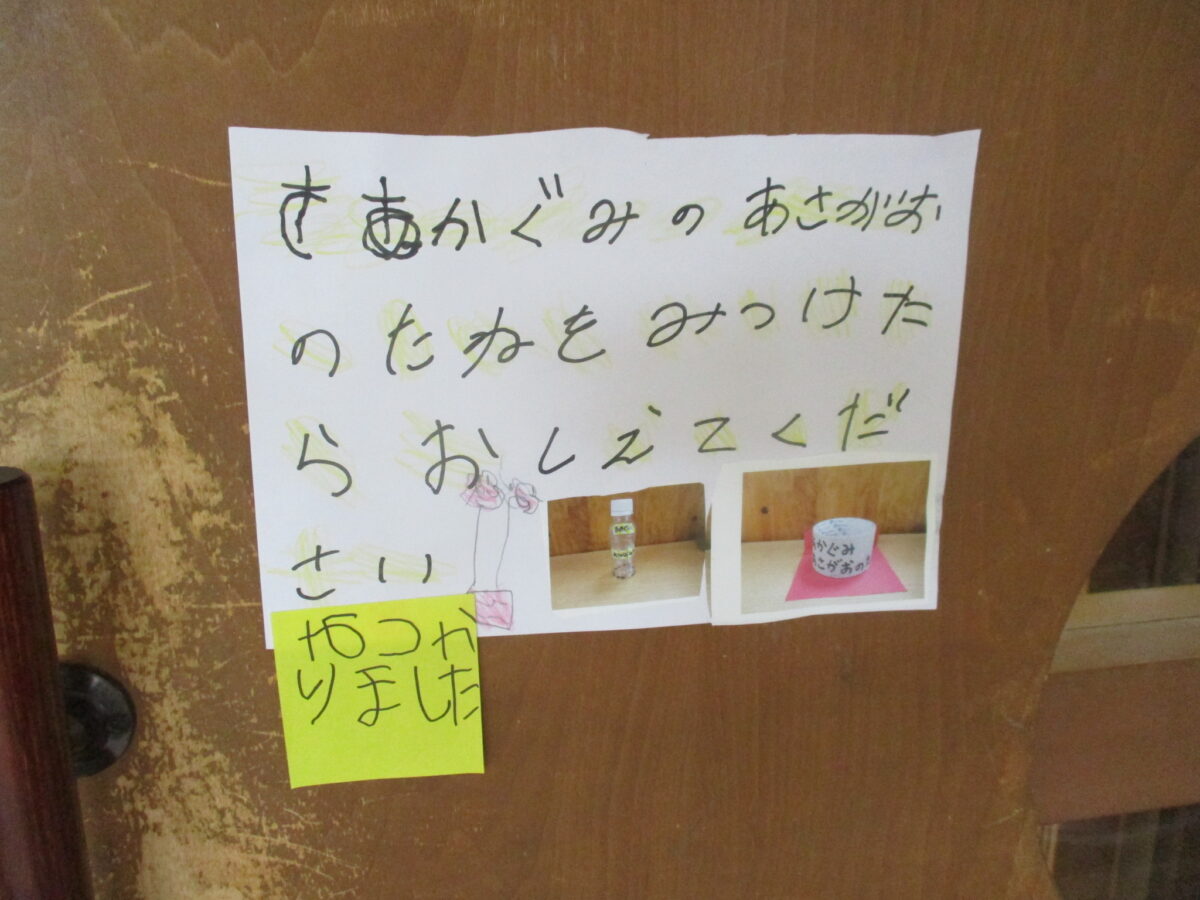 さ あかぐみのあさがお
のたねをみつけた
らおしえてくだ
さい
かぐみ
みつか
りました